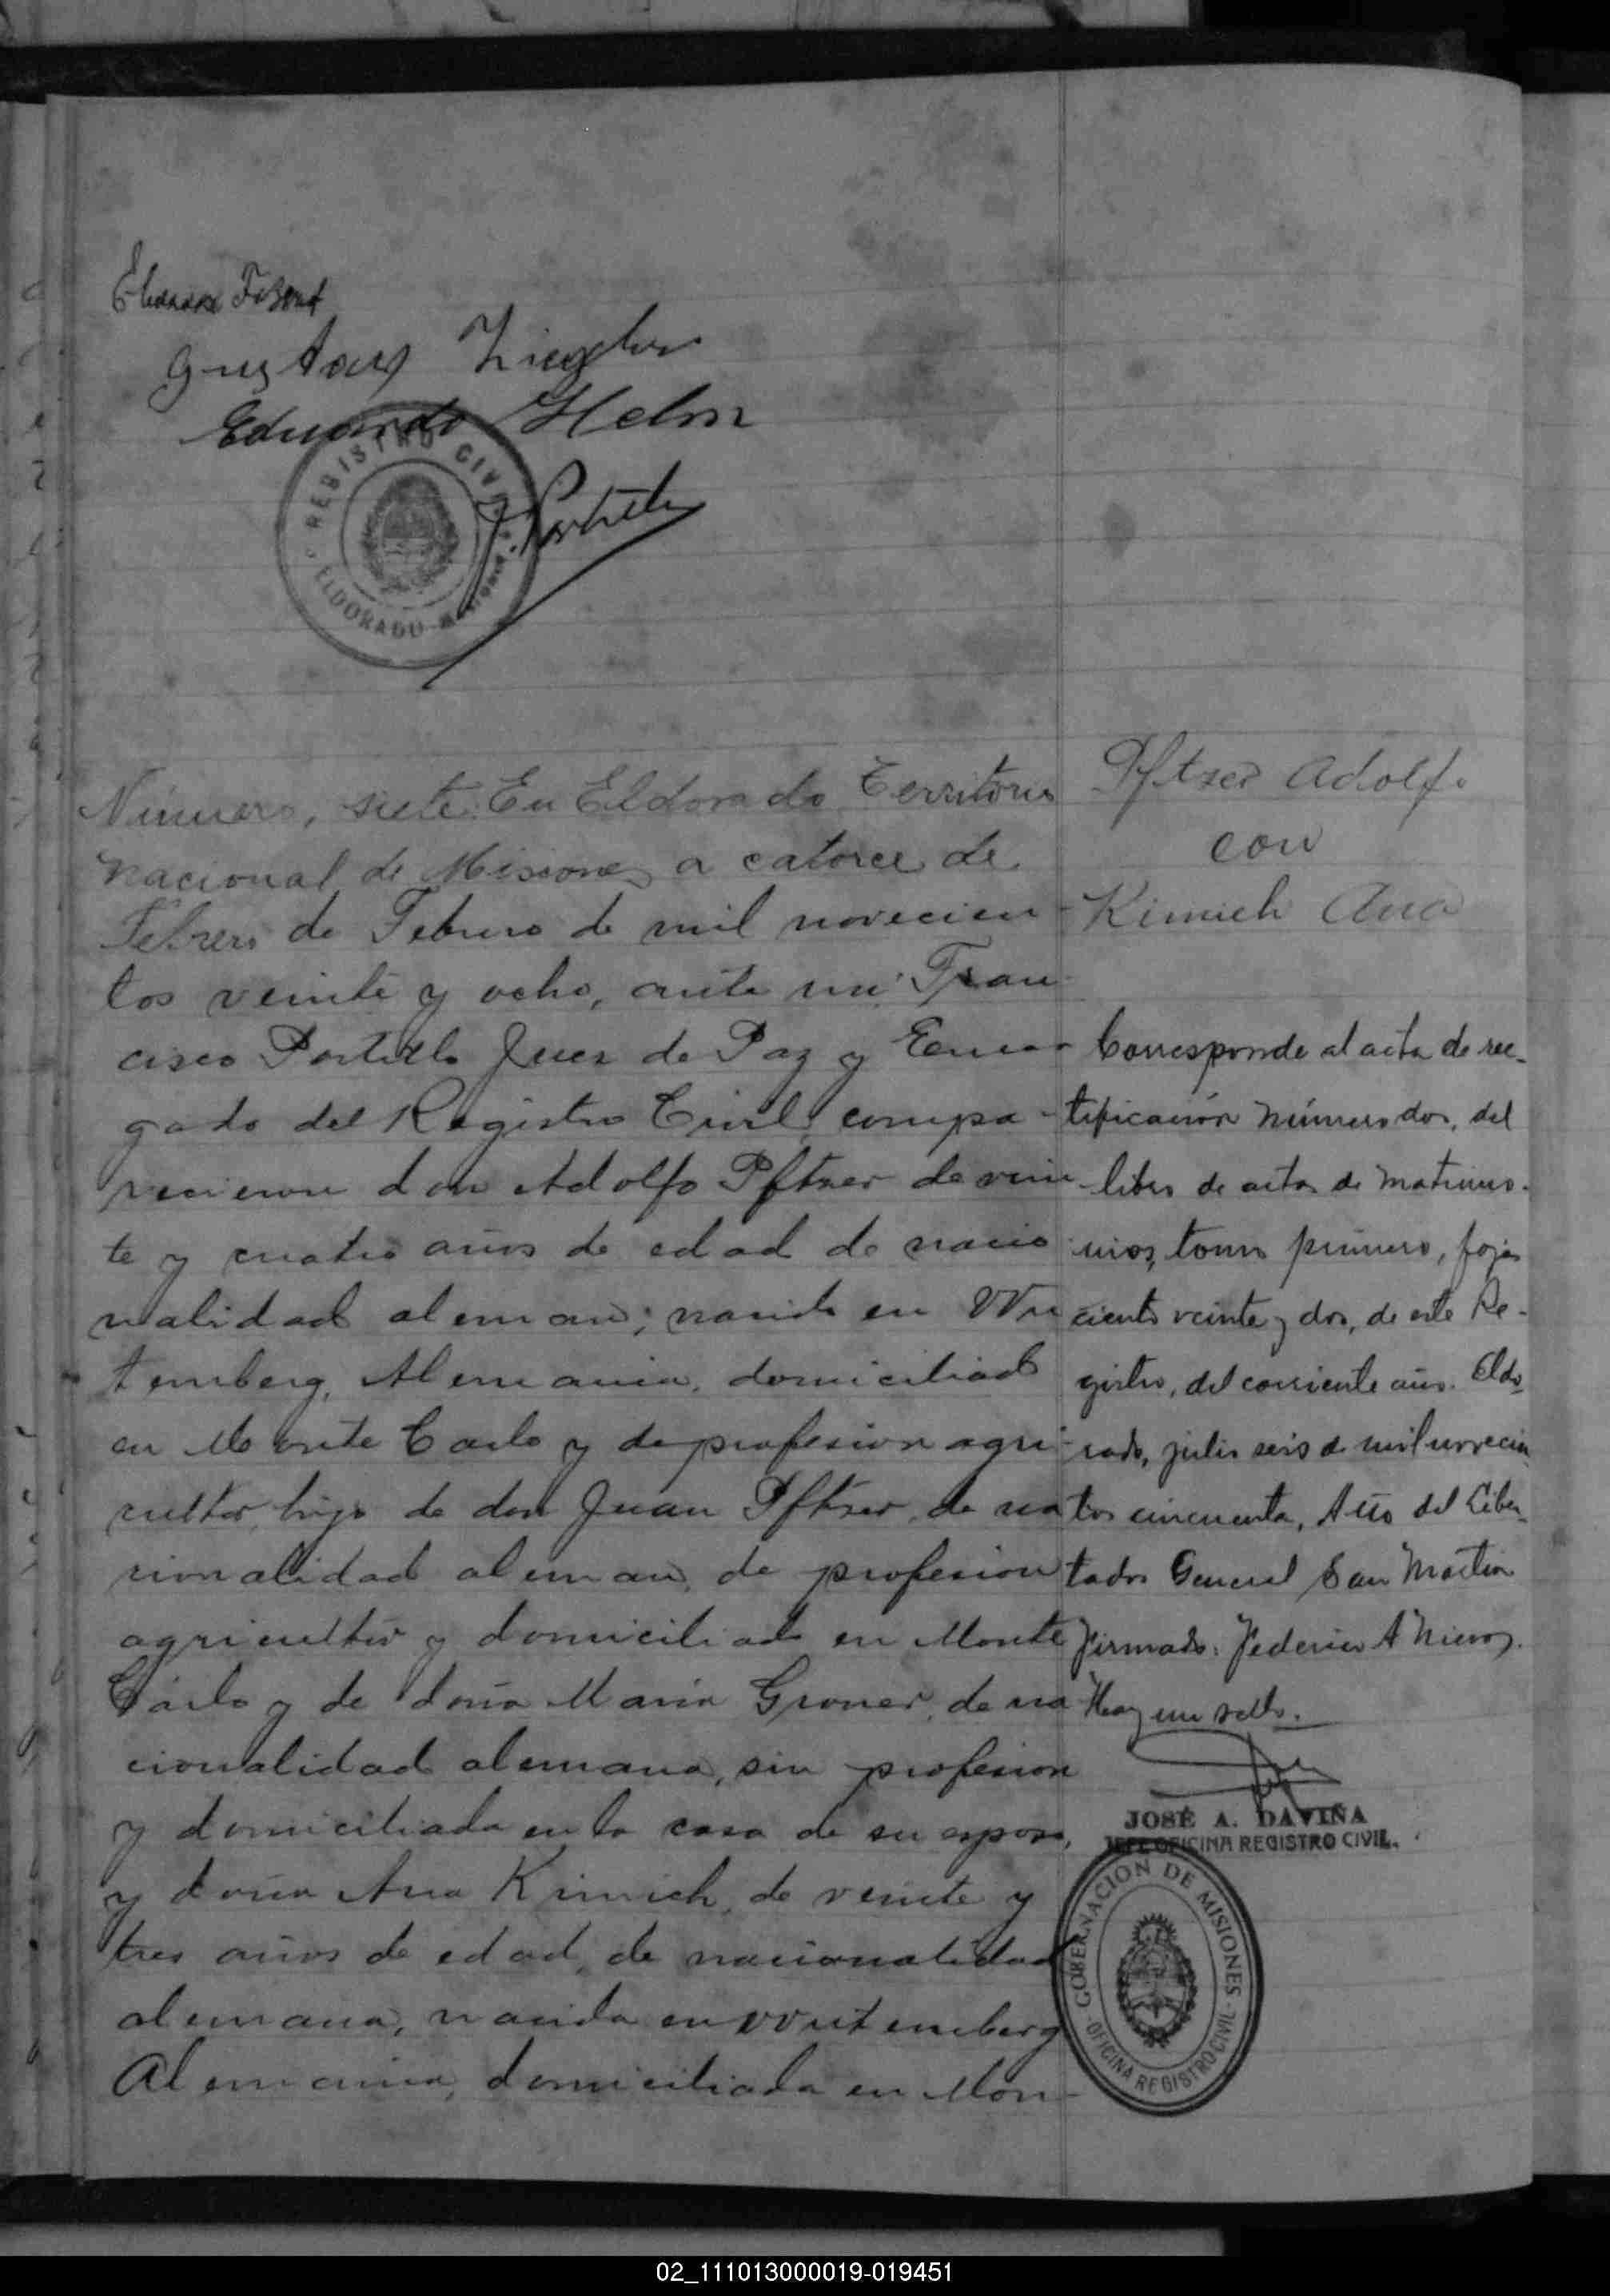 Gustav Ziegler
Eduardo Helm
REGISTRO CIVIL
ELDORADO MISIONES
F. Portillo
Número, siete. En Eldorado Territorio
nacional de Misiones a catorce de
Febrero de Febrero de mil novecien
tos veinte y ocho, ante mi Fran
cisco Portillo Juez de Paz y Encar
gado del Registro Civil, compa
recieron don Adolfo Pftzer de vein
te y cuatro años de edad de nacio
nalidad aleman, nacido en Wu
temberg, Alemania, domiciliado
en Monte Carlo y de profesion agri
cultor, hijo de don Juan Pftzer, de na
cionalidad aleman, de profesion
agricultor y domiciliado en Monte
Cárlo y de doña Maria Groner, de na
cionalidad alemana, sin profesion
y domiciliada en la casa de su esposo,
y doña Ana Kimich, de veinte y
tres años de edad, de nacionalidad
alemana, nacida en Wutemberg
Alemania, domiciliada en Mon-
Pftzer Adolfo
con
Kimich Ana
Corresponde al acta de rec-
tificación número dos, del
libro de actas de matrimo-
nios, tomo primero, fojas
ciento veinte y dos, de este Re-
gistro, del corriente año. Eldo-
rado, julio seis de mil novecien
tos cincuenta, Año del Liber-
tador General San Martín
Firmado: Federico A Nieves.
Hay un sello.
JOSÉ A. DAVIÑA
JEFE OFICINA REGISTRO CIVIL.
GOBERNACION DE MISIONES
OFICINA REGISTRO CIVIL
02_111013000019-019451